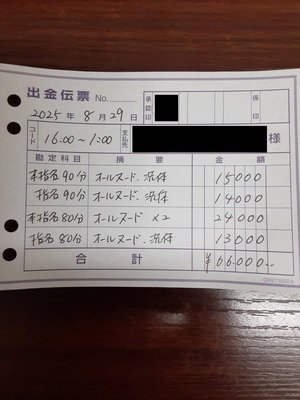 出金伝票 No.
2025年8月29日 承認印 係印
コード 16:00~1:00 支払先 様
勘定科目 摘要 金額
本指名90分 オールヌード.洗体 15000
指名90分 オールヌード.洗体 14000
本指名80分 オールヌード ×2 24000
指名80分 オールヌード.洗体 13000
合計 ¥66.000.-